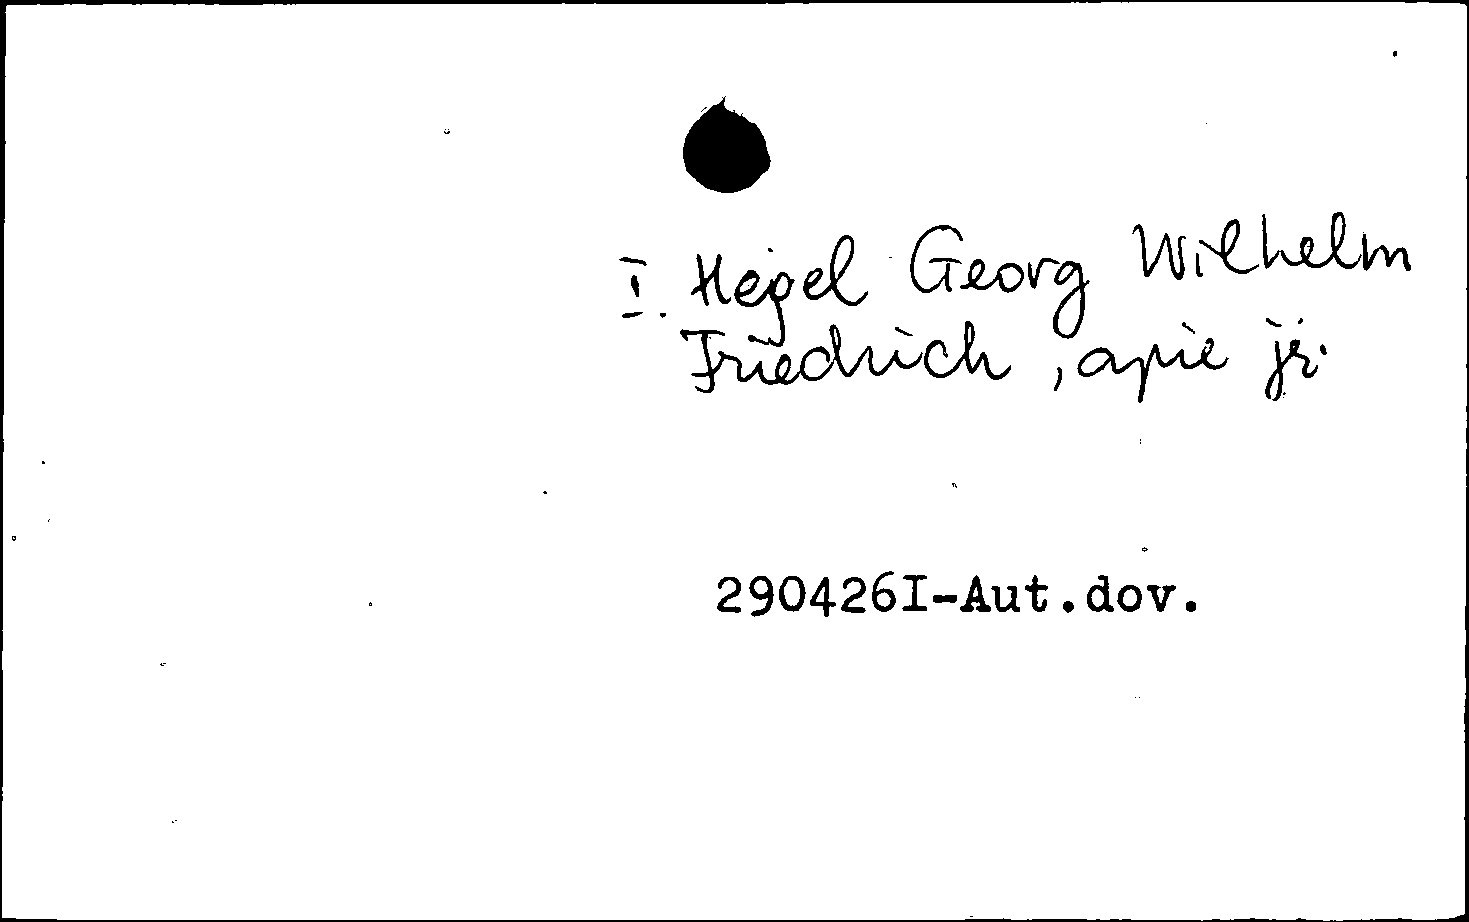 I. Hegel Georg Wilhelm
Friedrich, apie jį.
290426I-Aut.dov.